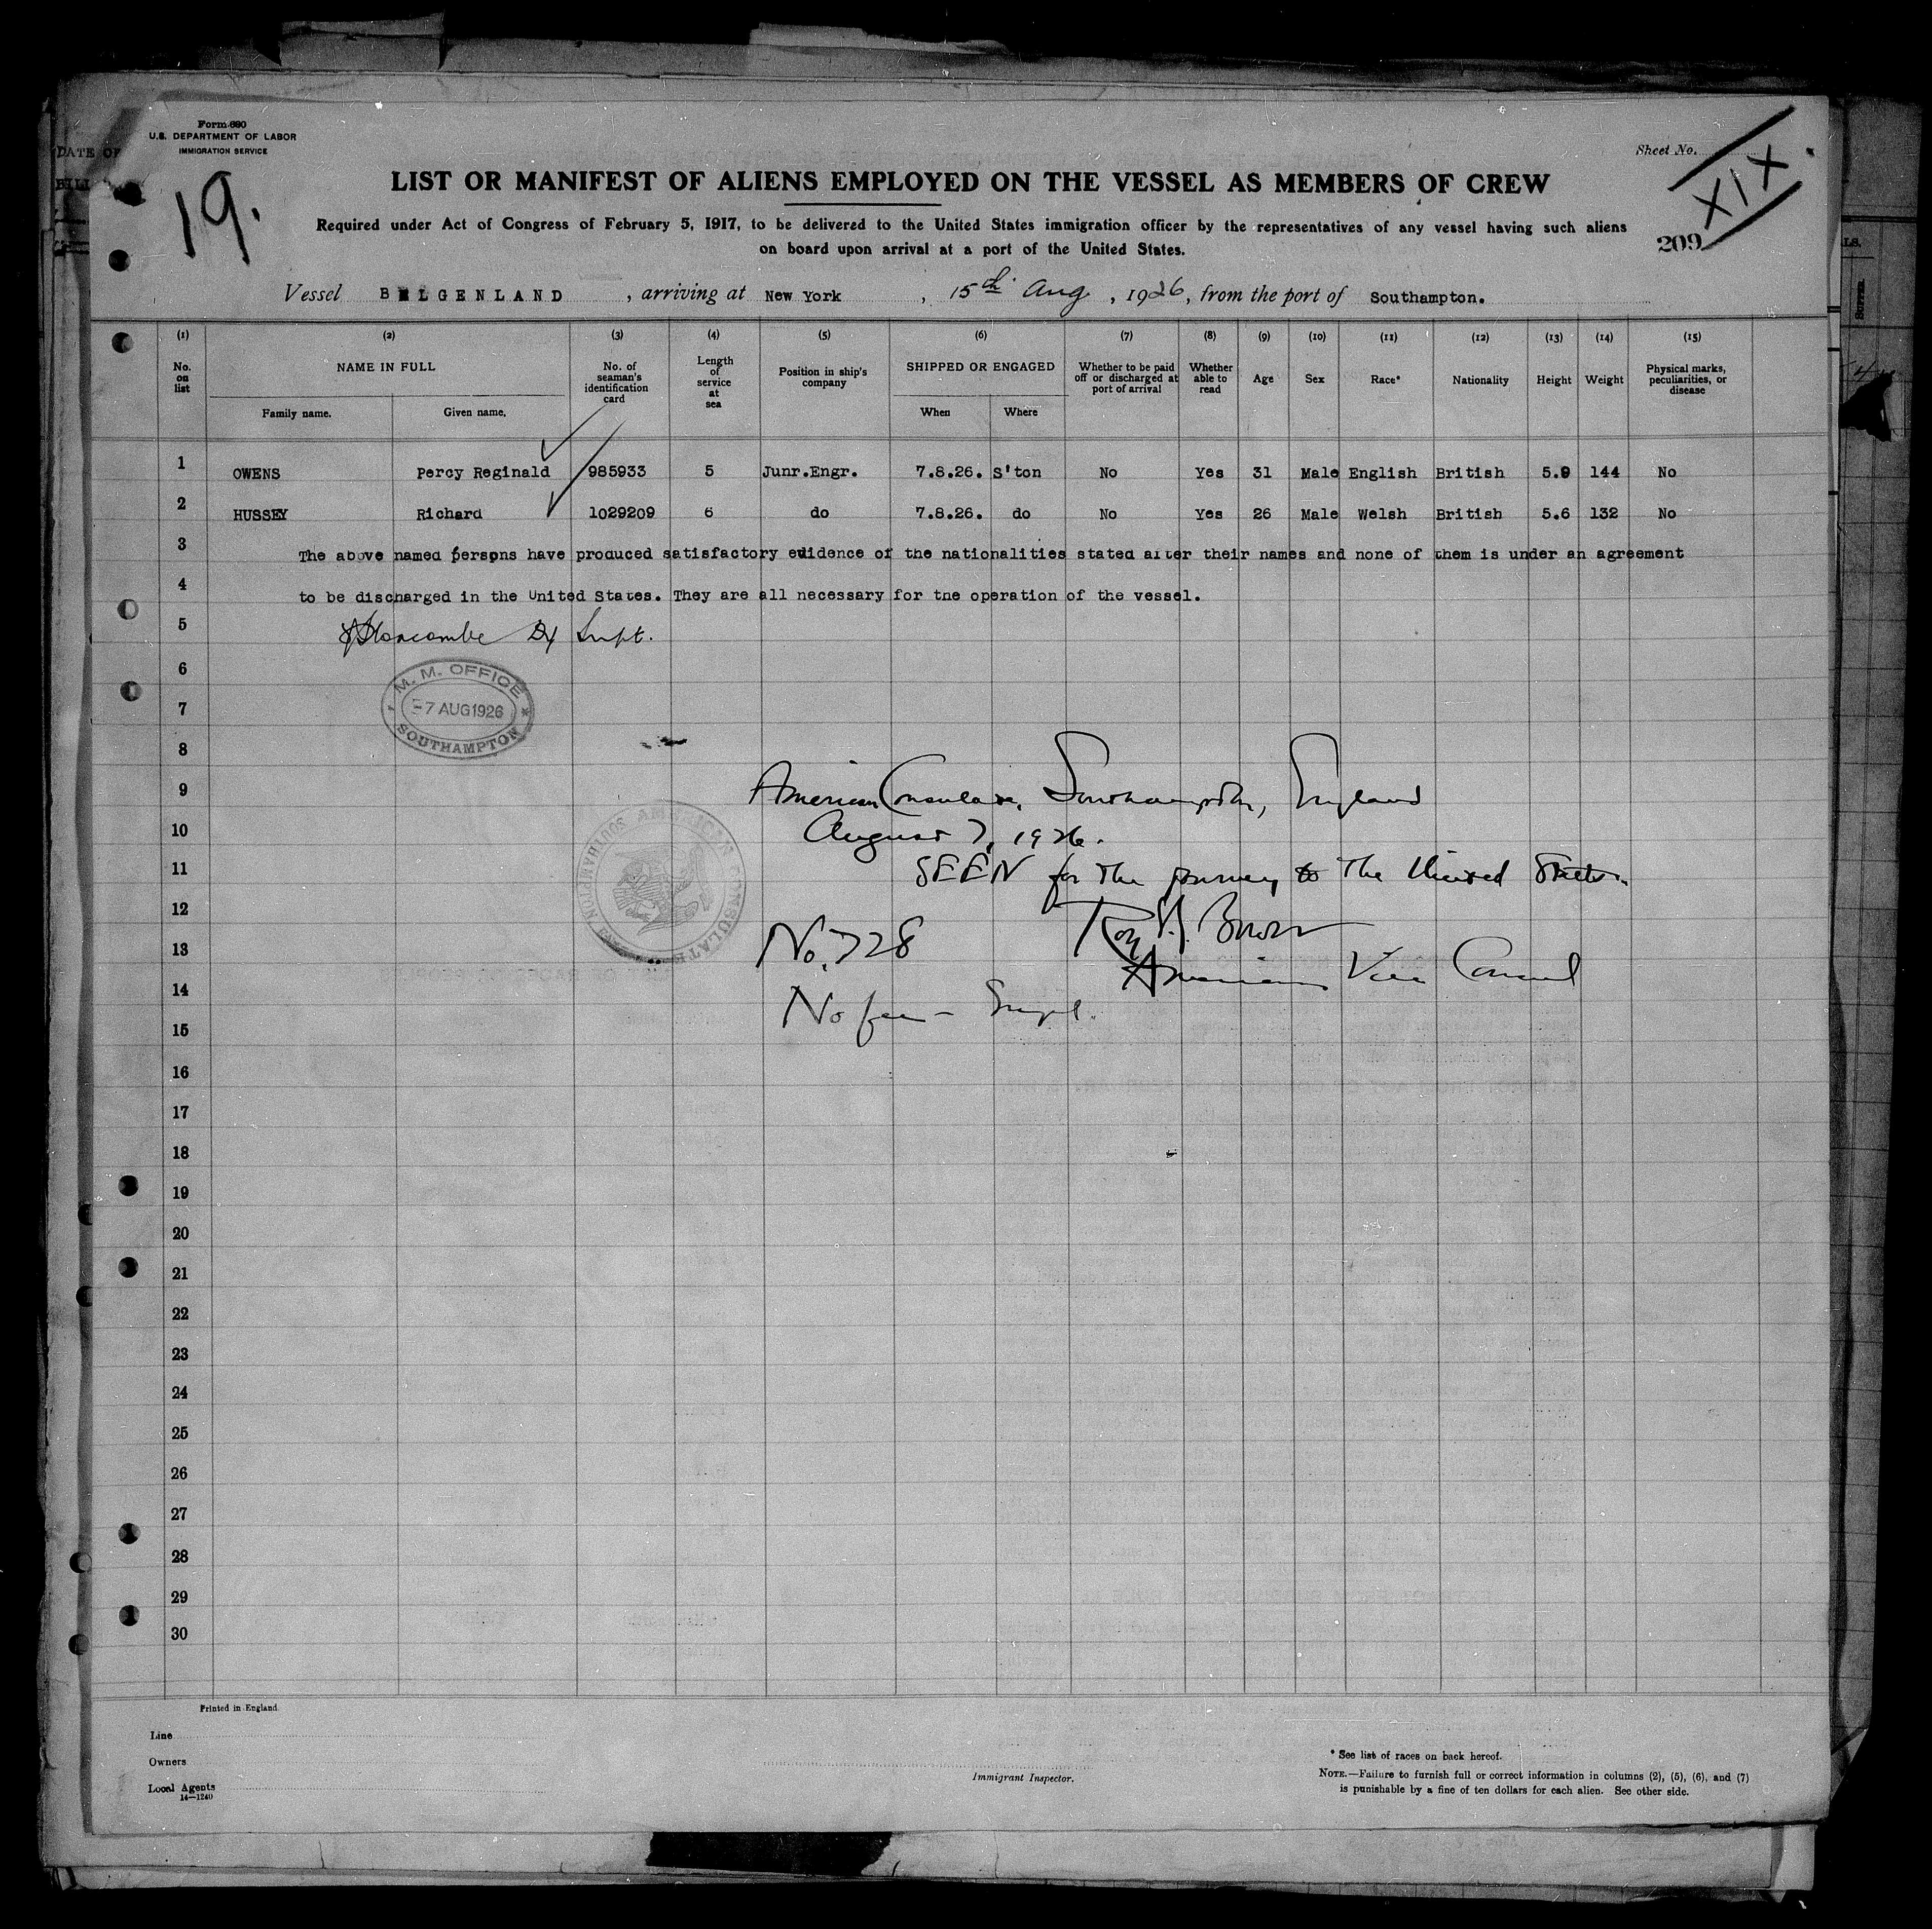 Form 680
U.S. DEPARTMENT OF LABOR
IMMIGRATION SERVICE
DATE OF
Sheet No.
XIX
19.
LIST OR MANIFEST OF ALIENS EMPLOYED ON THE VESSEL AS MEMBERS OF CREW
Required under Act of Congress of February 5, 1917, to be delivered to the United States immigration officer by the representatives of any vessel having such aliens
on board upon arrival at a port of the United States.
209
Vessel BELGENLAND, arriving at New York, 15th Aug, 1926, from the port of Southampton.
(1) (2) (3) (4) (5) (6) (7) (8) (9) (10) (11) (12) (13) (14) (15)
No. on list
NAME IN FULL
Family name. Given name.
No. of seaman's identification card
Length of service at sea
Position in ship's company
SHIPPED OR ENGAGED
When Where
Whether to be paid off or discharged at port of arrival
Whether able to read
Age
Sex
Race*
Nationality
Height
Weight
Physical marks, peculiarities, or disease
1 OWENS Percy Reginald 985933 5 Junr.Engr. 7.8.26. S'ton No Yes 31 Male English British 5.9 144 No
2 HUSSEY Richard 1029209 6 do 7.8.26. do No Yes 26 Male Welsh British 5.6 132 No
3 The above named persons have produced satisfactory evidence of the nationalities stated after their names and none of them is under an agreement
4 to be discharged in the United States. They are all necessary for the operation of the vessel.
5 Supt.
6
M. M. OFFICE
7
-7 AUG 1926
SOUTHAMPTON
8
9 American Consulate, Southampton, England
10 August 7, 1926.
11 SEEN for the journey to the United States.
AMERICAN CONSULATE
SOUTHAMPTON
12 Roy
13 No. 728
American Vice Consul
14 No fee -
15
16
17
18
19
20
21
22
23
24
25
26
27
28
29
30
Printed in England
Line
Owners
Local Agents
14—1240
Immigrant Inspector.
* See list of races on back hereof.
NOTE.—Failure to furnish full or correct information in columns (2), (5), (6), and (7)
is punishable by a fine of ten dollars for each alien. See other side.